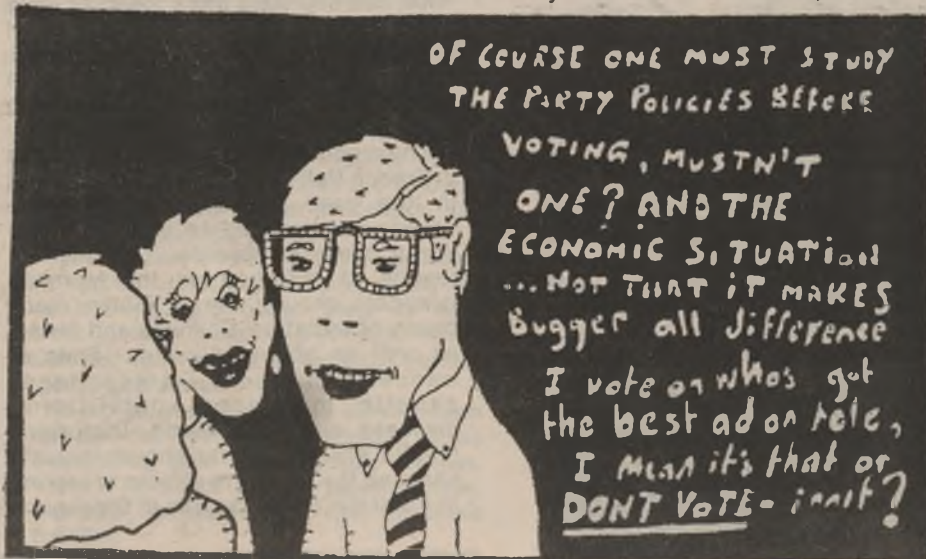 OF COURSE ONE MUST STUDY
THE PARTY POLICIES BEFORE
VOTING, MUSTN'T
ONE? AND THE
ECONOMIC SITUATION
...NOT THAT IT MAKES
Bugger all difference
I vote on who's got
the best ad on tele,
I mean it's that or
DONT VOTE - innit?